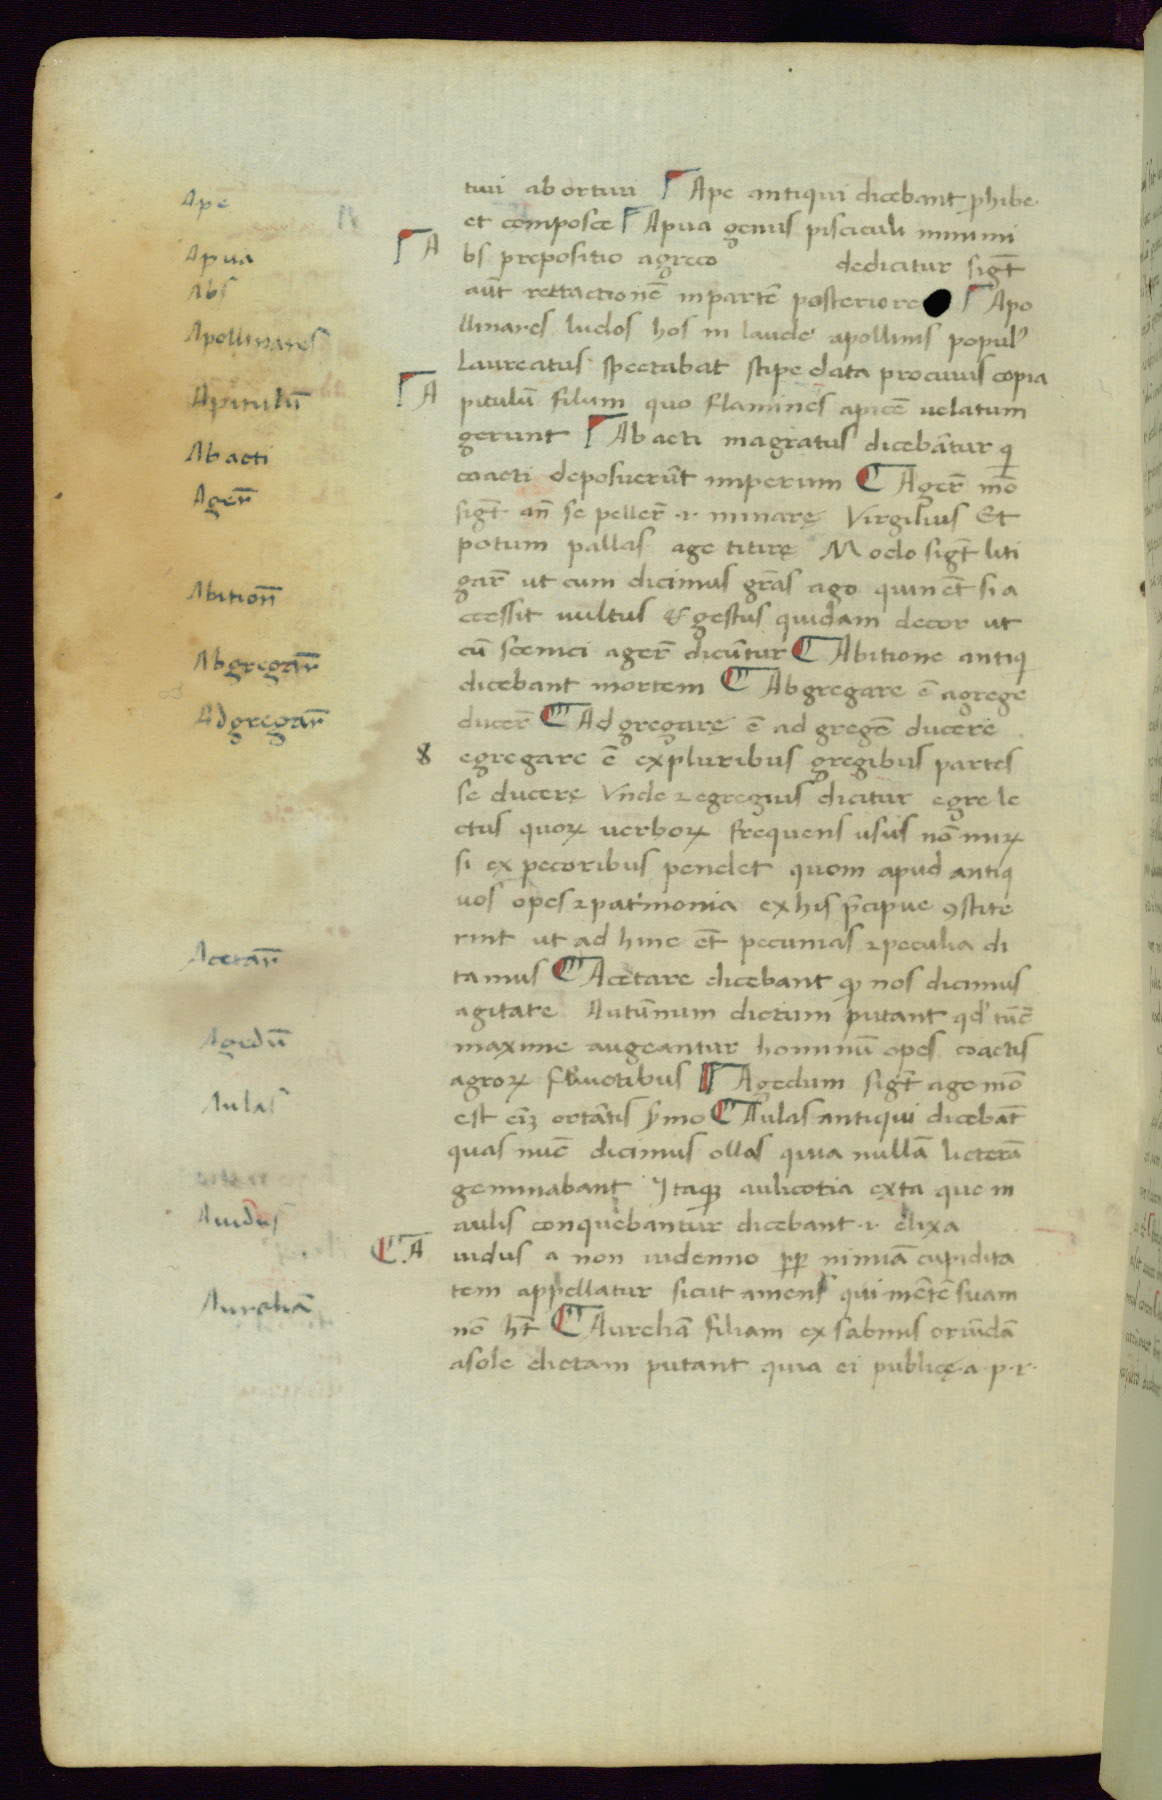 Ape
Apua
Abs
Apollinares
Apitulū
Abacti
Ager̄
Abitioñ
Abgregar̄
Adgregar̄
Acetar̄
Agedū
Aulas
Auidus
Aureliā
tui aborturi Ape antiqui dicebant phibe
et composce Apua genus pisciculi minimi
Abs prepositio agreco dedicitur sigt̄
aut̄ rettactionē inpartē posteriore Apo
llinares ludos hos in laudē apollinis popul⁹
Laureatus spectabat stipe data procuius copia
Apitulū filum quo flamines apicē uelatum
gerunt Abacti magratus dicebātur q
coacti deposuerūt imperium Ager̄ mō
sigt̄ añ se peller̄ ·i· minarę Virgilius Et
potum pallas age titirę Modo sigt̄ liti
gar̄ ut cum dicimus grās ago quin et̄ si a
ccessit uultus & gestus quidam decor ut
cū scenici ager̄ dicūtur Abitione antiq
dicebant mortem Abgregare ē agrege
ducer̄ Adgregarę ē ad gregē ducere
8 egregare ē expluribus gregibus partes
se ducerę Vnde ⁊ egregius dicitur egre le
ctus quoꝝ uerboꝝ frequens usus nō miꝝ
si ex pecoribus pendet quom apud antiq
uos opes ⁊ pat'monia ex his p̄cipue ꝯstite
rint ut ad hinc et̄ pecunias ⁊ peculia di
tamus Acetare dicebant qͩ nos dicimus
agitate Autūmum dictum putant qd' tūc
maxime augeantur hominū opes coactis
agroꝝ fructibus Agedum sigt̄ age mō
est eīꝫ ortātis s̄mo Aulas antiqui dicebāt
quas nuc̄ dicimus ollas quia nullā licterā
geminabant Itaqꝫ aulicotia exta que in
aulis conquebantur dicebant ·i· elixa
Auidus a non uidenno ꝓp nimiā cupidita
tem appellatur sicut amens qui mētē suam
nō ht̄ Aureliā filiam ex sabinis oriūdā
asole dictam putant quia ei publicę·a·p·r·